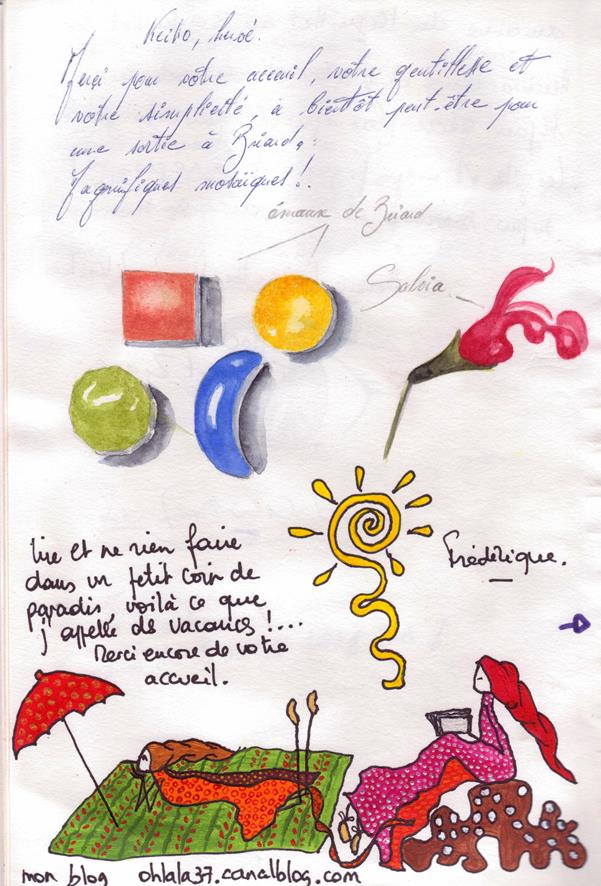 Keibo, hervé.
Merçi pour vôtre acceuil, vôtre gentillesse et
vôtre simplicité, à bientôt peut-être pour
une sortie à Briard,
Magnifiques mosaïques !.
émaux de Briard
Salvia
lire et ne rien faire
dans un petit coin de
paradis, voilà ce que
j'appelle des vacances !...
Merci encore de votre
accueil.
Frédérique.
mon blog ohlala37.canalblog.com